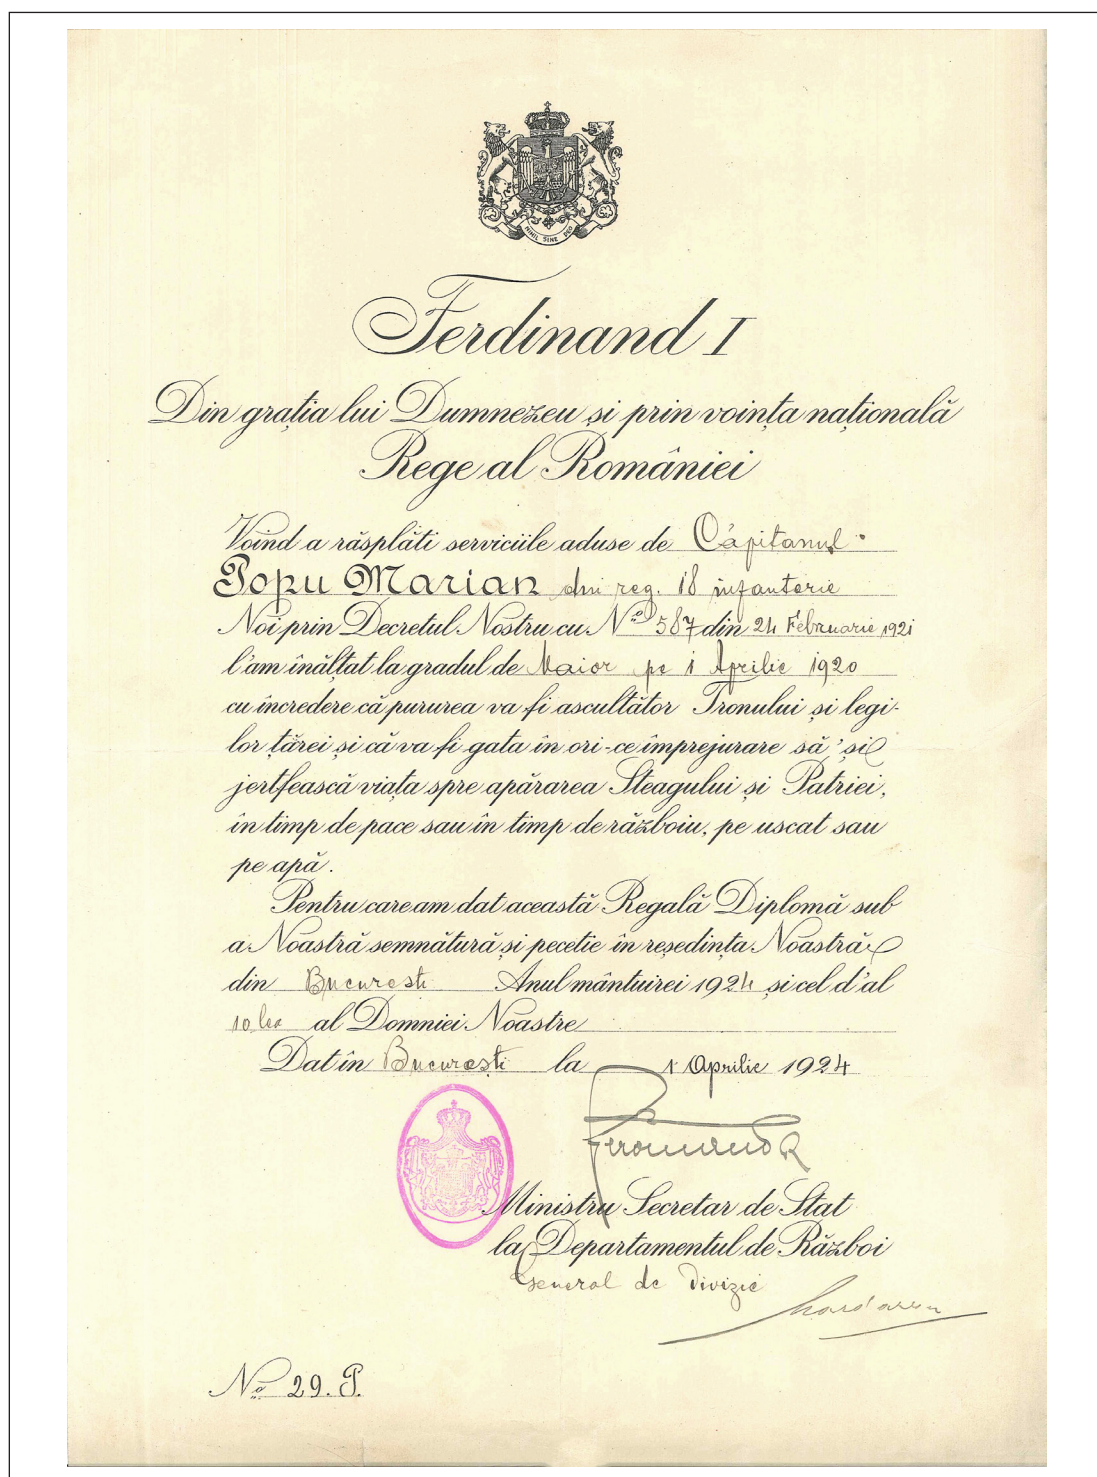 NIHIL SINE DEO
Ferdinand I
Din grația lui Dumnezeu și prin voința națională
Rege al României
Voind a răsplăti serviciile aduse de Căpitanul
Popu Marian din reg. 18 infanterie
Noi prin Decretul Nostru cu No 587 din 24 Februarie 1921
l'am înălțat la gradul de Maior pe 1 Aprilie 1920
cu încredere că pururea va fi ascultător Tronului și legi-
lor țărei și că va fi gata în ori-ce împrejurare să'și
jertfească viața spre apărarea Steagului și Patriei,
în timp de pace sau în timp de războiu, pe uscat sau
pe apă.
Pentru care am dat această Regală Diplomă sub
a Noastră semnătură și pecetie în reședința Noastră
din București Anul mântuirei 1924 și cel d'al
10 lea al Domniei Noastre
Dat în București la 1 Aprilie 1924
Ferdinand R
Ministru Secretar de Stat
la Departamentul de Război
General de Divizie
No 29. P.